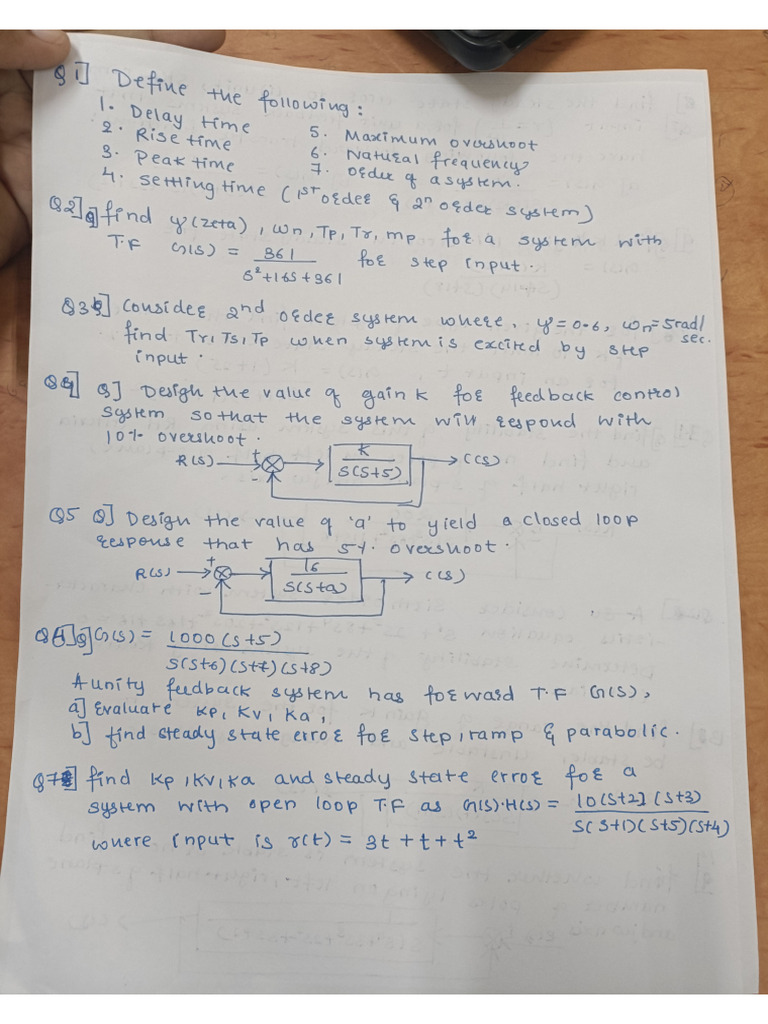 Q1] Define the following:
1. Delay time
2. Rise time
3. Peak time
4. settling time (1ST order & 2n order system)
5. Maximum overshoot
6. Natural frequency
7. order of a system.
Q2] find ζ(zeta), ωn, Tp, Tr, mp for a system with
T.F G(s) = 361 / s²+16s+361 for step input.
Q3] consider 2nd order system where, ζ=0.6, ωn=5rad/
sec.
find Tr, Ts, Tp when system is excited by step
input.
Q4 Q] Design the value of gain k for feedback control
system so that the system will respond with
10% overshoot.
R(s) + - K / s(s+5) C(s)
Q5 Q] Design the value of 'a' to yield a closed loop
response that has 5% overshoot.
R(s) + - 16 / s(s+a) C(s)
Q6] G(s) = 1000(s+5) / s(s+6)(s+7)(s+8)
A unity feedback system has forward T.F G(s),
a] Evaluate Kp, Kv, Ka,
b] find steady state error for step, ramp & parabolic.
Q7] find Kp, Kv, Ka and steady state error for a
system with open loop T.F as G(s).H(s) = 10(s+2)(s+3) / s(s+1)(s+5)(s+4)
where input is r(t) = 3t+t+t²